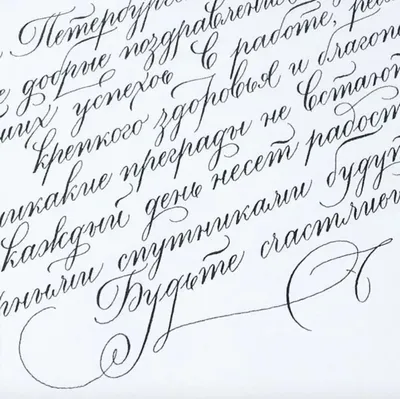 Петербург
добрые поздравлени
ших успехов в работе,
крепкого здоровья и благопо
никакие преграды не встают
каждый день несет радост
ными спутниками будут
Будьте счастливы